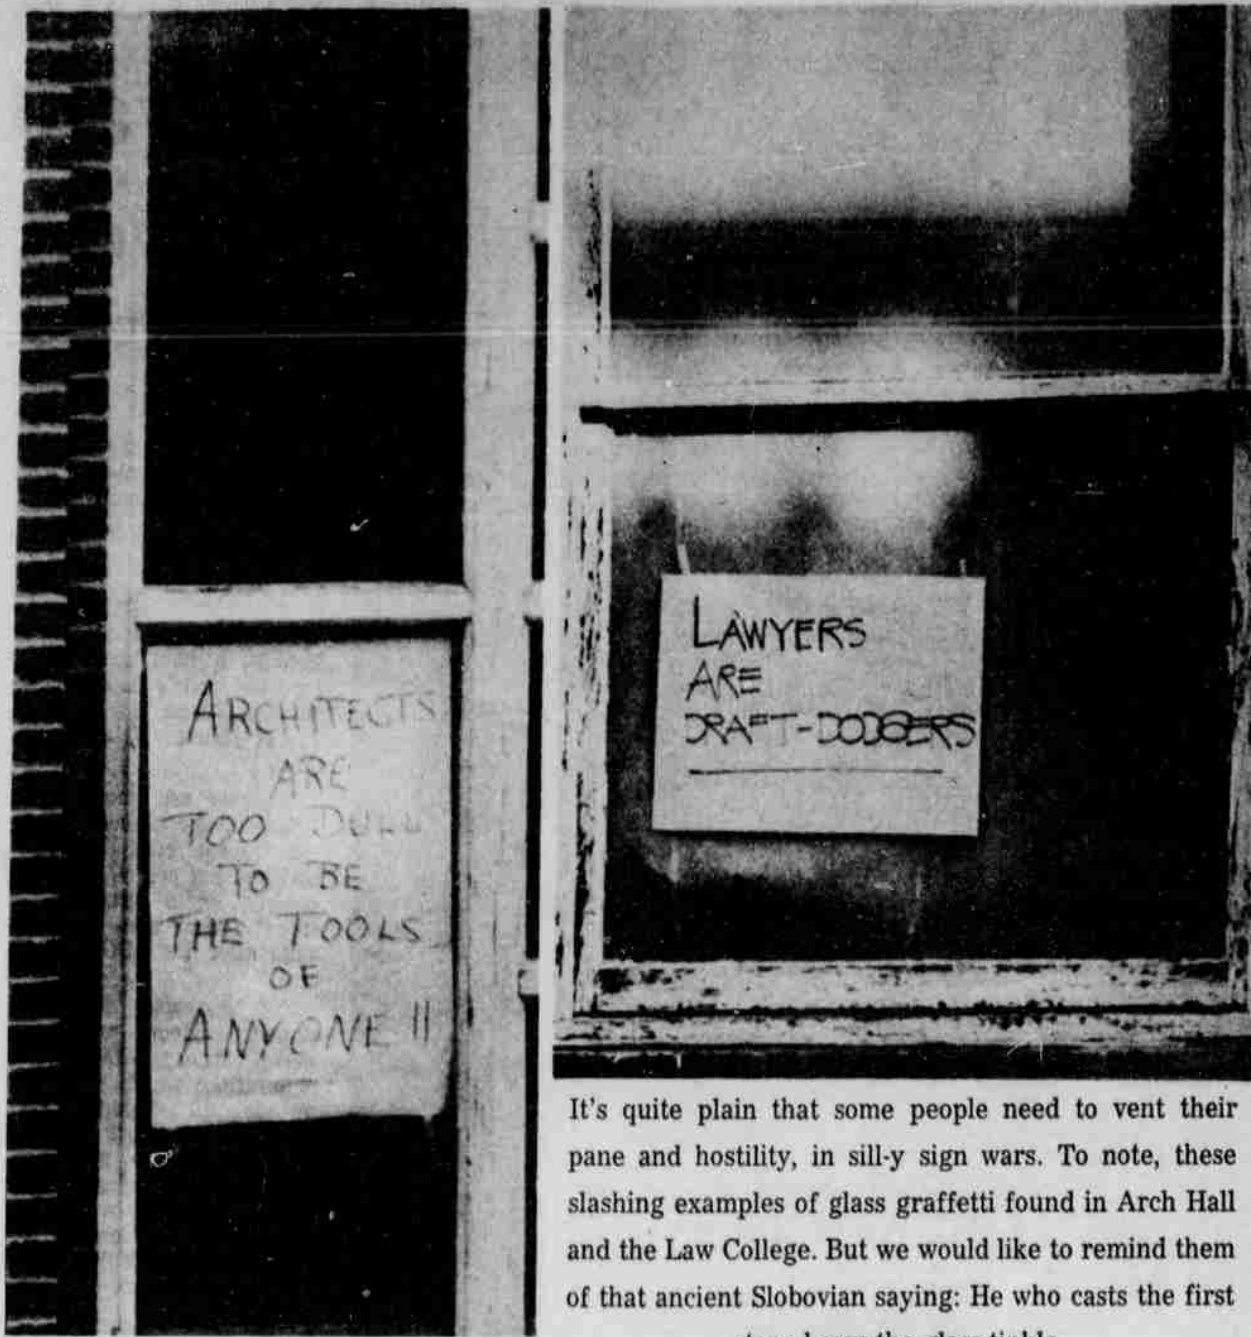 ARCHITECTS
ARE
TOO DULL
TO BE
THE TOOLS
OF
ANYONE !!
LAWYERS
ARE
DRAFT-DODGERS
It's quite plain that some people need to vent their
pane and hostility, in sill-y sign wars. To note, these
slashing examples of glass graffetti found in Arch Hall
and the Law College. But we would like to remind them
of that ancient Slobovian saying: He who casts the first